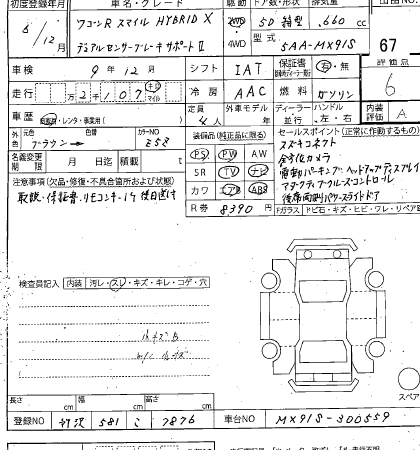 初度登録年月 車名・グレード 駆動 ドア数・形状 排気量 出品No.
5/12月 ワゴンR スマイル HYBRID X 2WD 4WD 5D 箱型 .660 cc 67
デュアルセンサーブレーキサポートⅡ 型式 5AA-MX91S
車検 9年12月 シフト IAT 保証書 有・無 評価点 6
走行 万2千107 キロ マイル 冷房 AAC 燃料 ガソリン
車歴 自家用・レンタ・事業用( ) 定員 4人 外車モデル 年 ディーラー 並行 ハンドル 左・右 内装評価 A
外色 元色 ブラウン 色替 カラーNO 装備品(純正品に限る) セールスポイント(正常に作動するもの)
名義変更期限 月 日迄 積載 t PS PW AW スズキコネクト
注意事項(欠品・修復・不具合箇所および状態) SR TV ナビ 全方位カメラ
取説・保証書・リモコンキー1ケ後日送付 カワ エアB ABS 電動パーキング、ヘッドアップディスプレイ
アダクティブクルーズコントロール
R券 8390円 後席両側パワースライドドア
Fガラス トビ石・キズ・ヒビ・ワレ・リペア
検査員記入 内装 汚レ・スレ・キズ・キレ・コゲ・穴
小キズB
スペア
長さ cm 幅 cm 高さ cm
登録NO 581 こ 7876 車台NO MX91S-300559